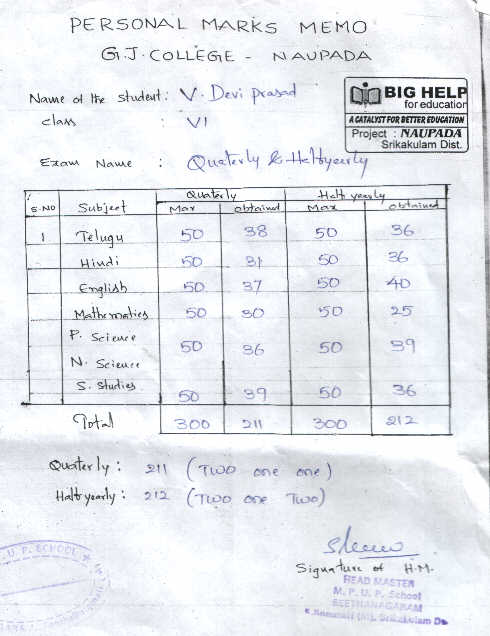 PERSONAL MARKS MEMO
G.J. COLLEGE - NAUPADA
Name of the student: V. Devi prasad
class : VI
Exam Name : Quaterly & Halfyearly
BIG HELP
for education
A CATALYST FOR BETTER EDUCATION
Project : NAUPADA
Srikakulam Dist.
S.NO Subject Quaterly Half yearly
Max obtained Max obtained
1 Telugu 50 38 50 36
Hindi 50 31 50 36
English 50 37 50 40
Mathematics 50 30 50 25
P. Science
50 36 50 39
N. Science
S. Studies 50 39 50 36
Total 300 211 300 212
Quaterly : 211 (Two one one)
Halfyearly : 212 (Two one Two)
Signature of H.M.
HEAD MASTER
M. P. U. P. School
SEETHANAGARAM
(M), Srikakulam Dt.
U. P. SCHOOL